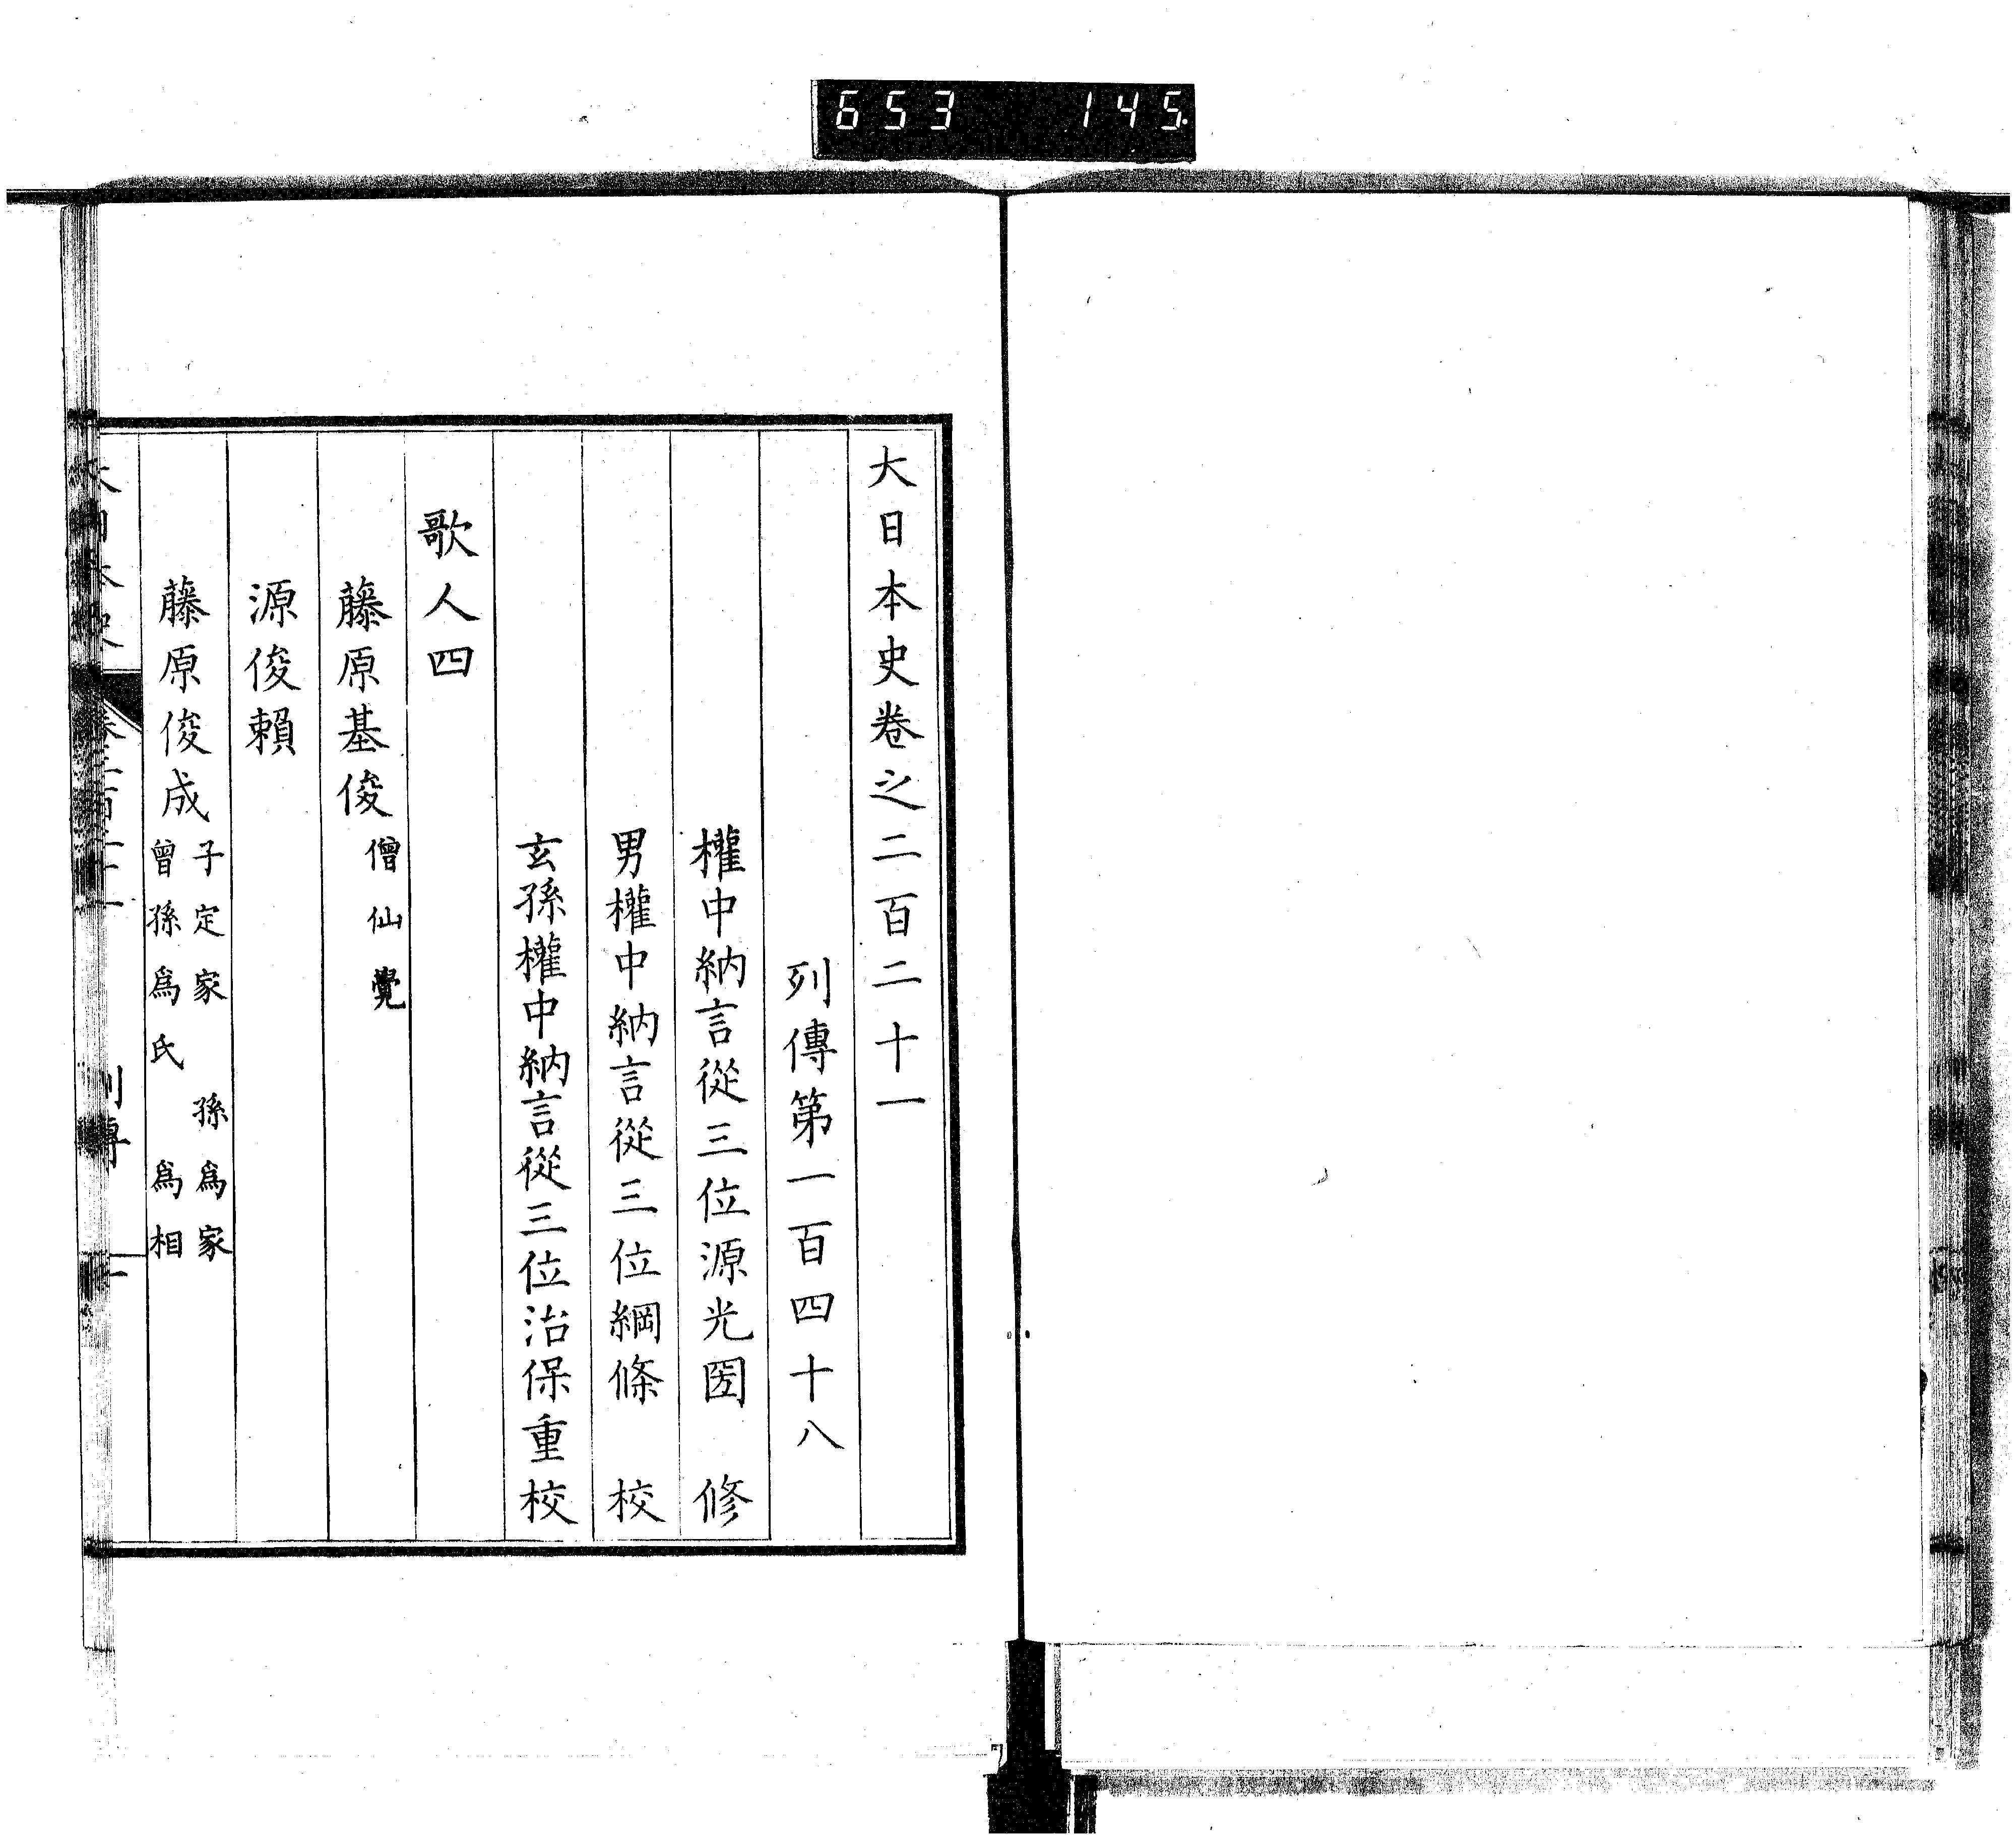 653 145
大日本史卷之二百二十一
列傳第一百四十八
權中納言從三位源光圀 修
男權中納言從三位綱條 校
玄孫權中納言從三位治保重校
歌人四
藤原基俊 僧仙覺
源俊賴
藤原俊成 子定家 孫爲家
曾孫爲氏 爲相